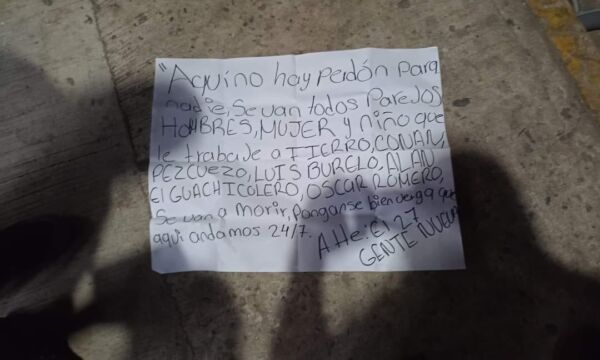 "Aquí no hay perdón para
nadie, Se van todos Parejos
HoMBRES, MUJER y niño que
le trabaje a FIERRO, CONAN,
PEZCUEZO, LUIS BURELO, ALAN
El GUACHICOLERO, OSCAR ROMERO,
Se van a morir, Ponganse bien verga que
aquí andamos 24/7.
AHe: El 27
GENTE NUEVA